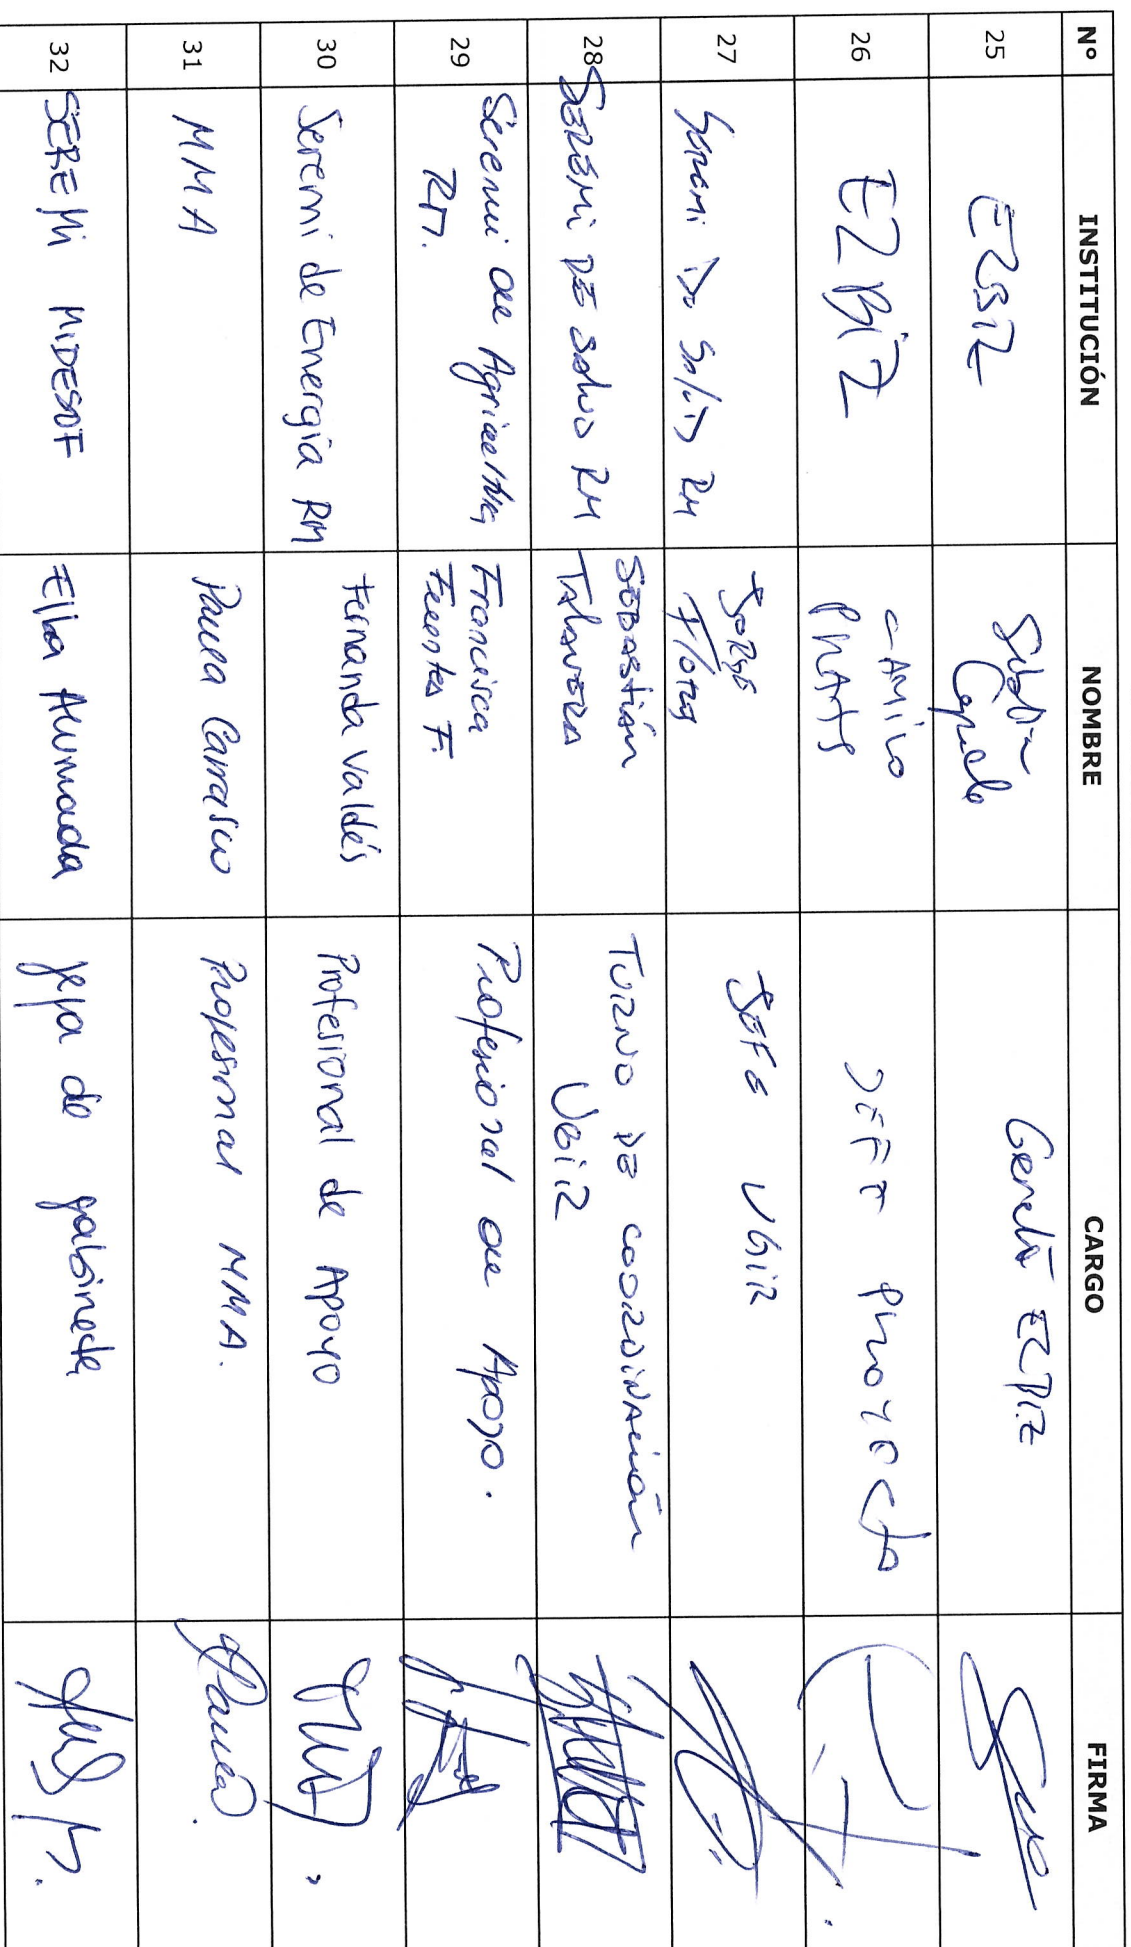 Nº INSTITUCIÓN NOMBRE CARGO FIRMA
25 EZBIZ Gerente EZBIZ
26 EZBiZ CAMilo PHAtS JEFE PROYECto
27 Seremi De Salud RM JORGE Flores JEFE UGIR
28 SEREMi DE Salud RM SEBAStián TalavERA TURNO DE COORDINAción
29 Seremi de Agricultura RM. Francisca Fuentes F. Profesional de Apoyo.
30 Seremi de Energía RM Fernanda Valdés Profesional de Apoyo
31 MMA Paula Carrasco Profesional MMA.
32 SEREMi MIDESOF Elba Ahumada Jefa de gabinete